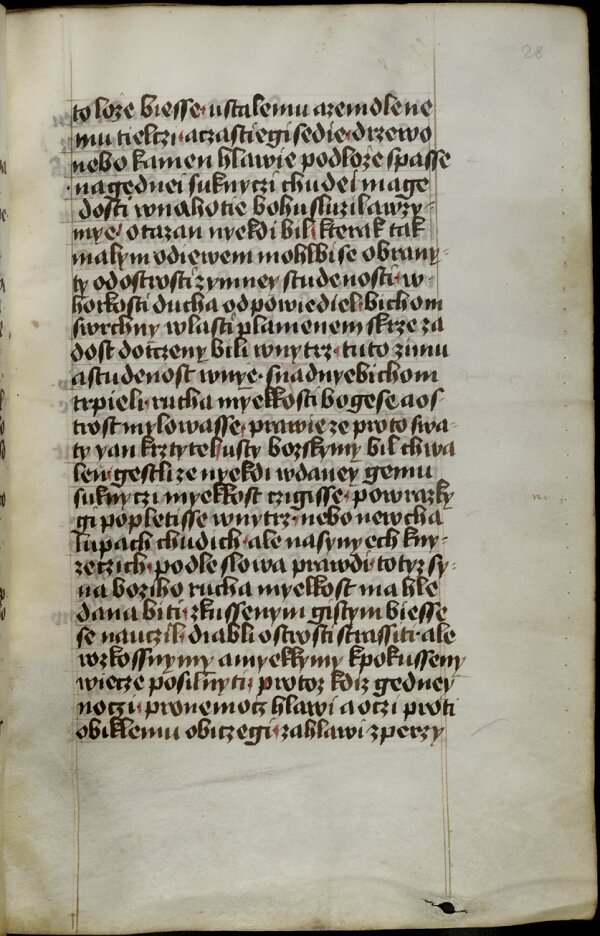 28
to loze biesse· ustalemu azemdlene
mu tielczi· aczastiegi sedie· drzewo
nebo kamen hlawie podloze spasse
·nagednei suknyczi chudei mage
dosti wnahotie bohu sluzil awzy-
mye· otazan nyekdi bil· kterak tak
malym odiewem mohl bi se obrany-
ty od ostrosti zymney studenosti· w
horkosti ducha odpowiediel· bichom
swrchny wlasti plamenem skrze za
dost dotczeny bili wnytrz· tuto zimu
a studenost wnye· snadnye bichom
trpieli· rucha myekkosti bogese a os
trost mylowasse· prawie ze proto swa
ty yan krztytel· usty bozskymy bil chwa
len· gestli ze nyekdi wdaney gemu
suknyczi myekkost czigisse· powrazky
gi popletisse wnytrz· nebo newcha
lupach chudich· ale nasynyech kny-
zeczich· podle slowa prawdi· totyz sy-
na boziho rucha myekkost ma hle
dana biti· zkussenym gistym biesse
se nauczil· diabli ostrosti strassiti· ale
rozkossnymy a myekkymy kpokusseny
wiecze posilnyti· protoz kdiz gedney
noczi· pro nemocz hlawi a oczi proti
obiklemu obiczegi· zahlawi zperzy